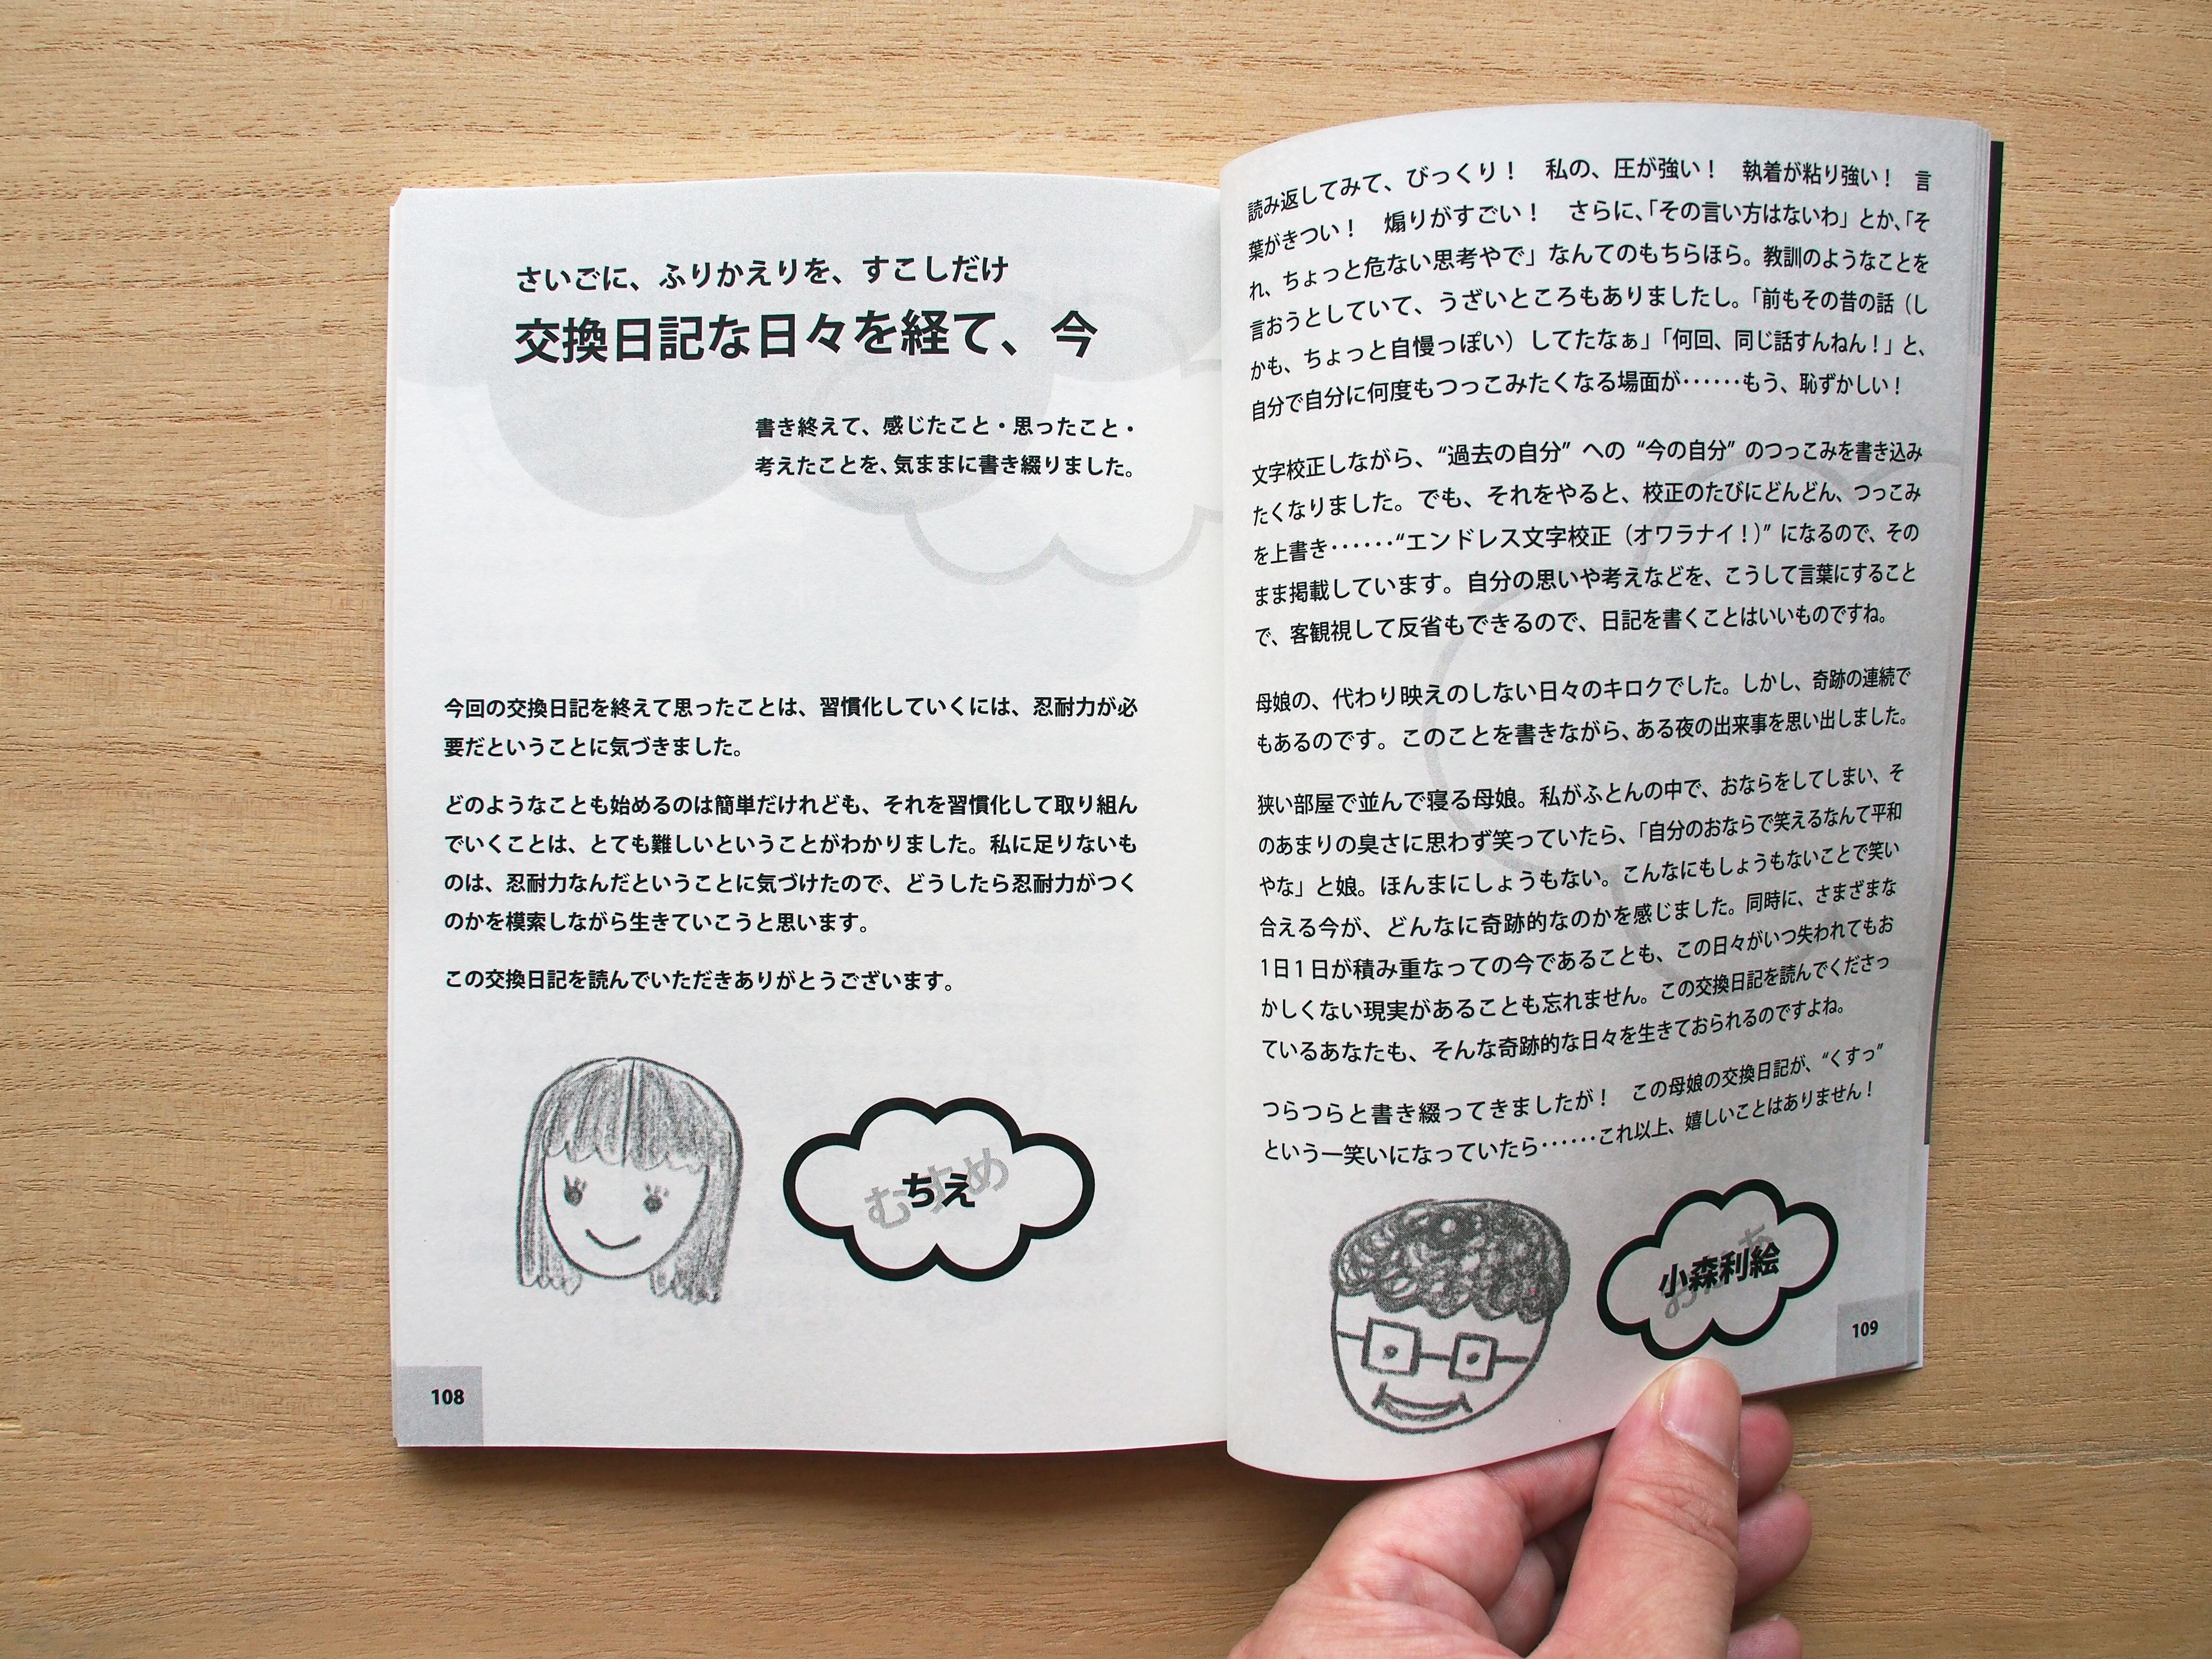 さいごに、ふりかえりを、すこしだけ
交換日記な日々を経て、今
書き終えて、感じたこと・思ったこと・
考えたことを、気ままに書き綴りました。
今回の交換日記を終えて思ったことは、習慣化していくには、忍耐力が必
要だということに気づきました。
どのようなことも始めるのは簡単だけれども、それを習慣化して取り組ん
でいくことは、とても難しいということがわかりました。私に足りないも
のは、忍耐力なんだということに気づけたので、どうしたら忍耐力がつく
のかを模索しながら生きていこうと思います。
この交換日記を読んでいただきありがとうございます。
むすめ
ちえ
108
読み返してみて、びっくり！　私の、圧が強い！　執着が粘り強い！　言
葉がきつい！　煽りがすごい！　さらに、「その言い方はないわ」とか、「そ
れ、ちょっと危ない思考やで」なんてのもちらほら。教訓のようなことを
言おうとしていて、うざいところもありましたし。「前もその昔の話（し
かも、ちょっと自慢っぽい）してたなぁ」「何回、同じ話すんねん！」と、
自分で自分に何度もつっこみたくなる場面が……もう、恥ずかしい！
文字校正しながら、“過去の自分” への “今の自分” のつっこみを書き込み
たくなりました。でも、それをやると、校正のたびにどんどん、つっこみ
を上書き……“エンドレス文字校正（オワラナイ！）” になるので、その
まま掲載しています。自分の思いや考えなどを、こうして言葉にすること
で、客観視して反省もできるので、日記を書くことはいいものですね。
母娘の、代わり映えのしない日々のキロクでした。しかし、奇跡の連続で
もあるのです。このことを書きながら、ある夜の出来事を思い出しました。
狭い部屋で並んで寝る母娘。私がふとんの中で、おならをしてしまい、そ
のあまりの臭さに思わず笑っていたら、「自分のおならで笑えるなんて平和
やな」と娘。ほんまにしょうもない。こんなにもしょうもないことで笑い
合える今が、どんなに奇跡的なのかを感じました。同時に、さまざまな
1日1日が積み重なっての今であることも、この日々がいつ失われてもお
かしくない現実があることも忘れません。この交換日記を読んでくださっ
ているあなたも、そんな奇跡的な日々を生きておられるのですよね。
つらつらと書き綴ってきましたが！　この母娘の交換日記が、“くすっ”
という一笑いになっていたら……これ以上、嬉しいことはありません！
小森利絵
109